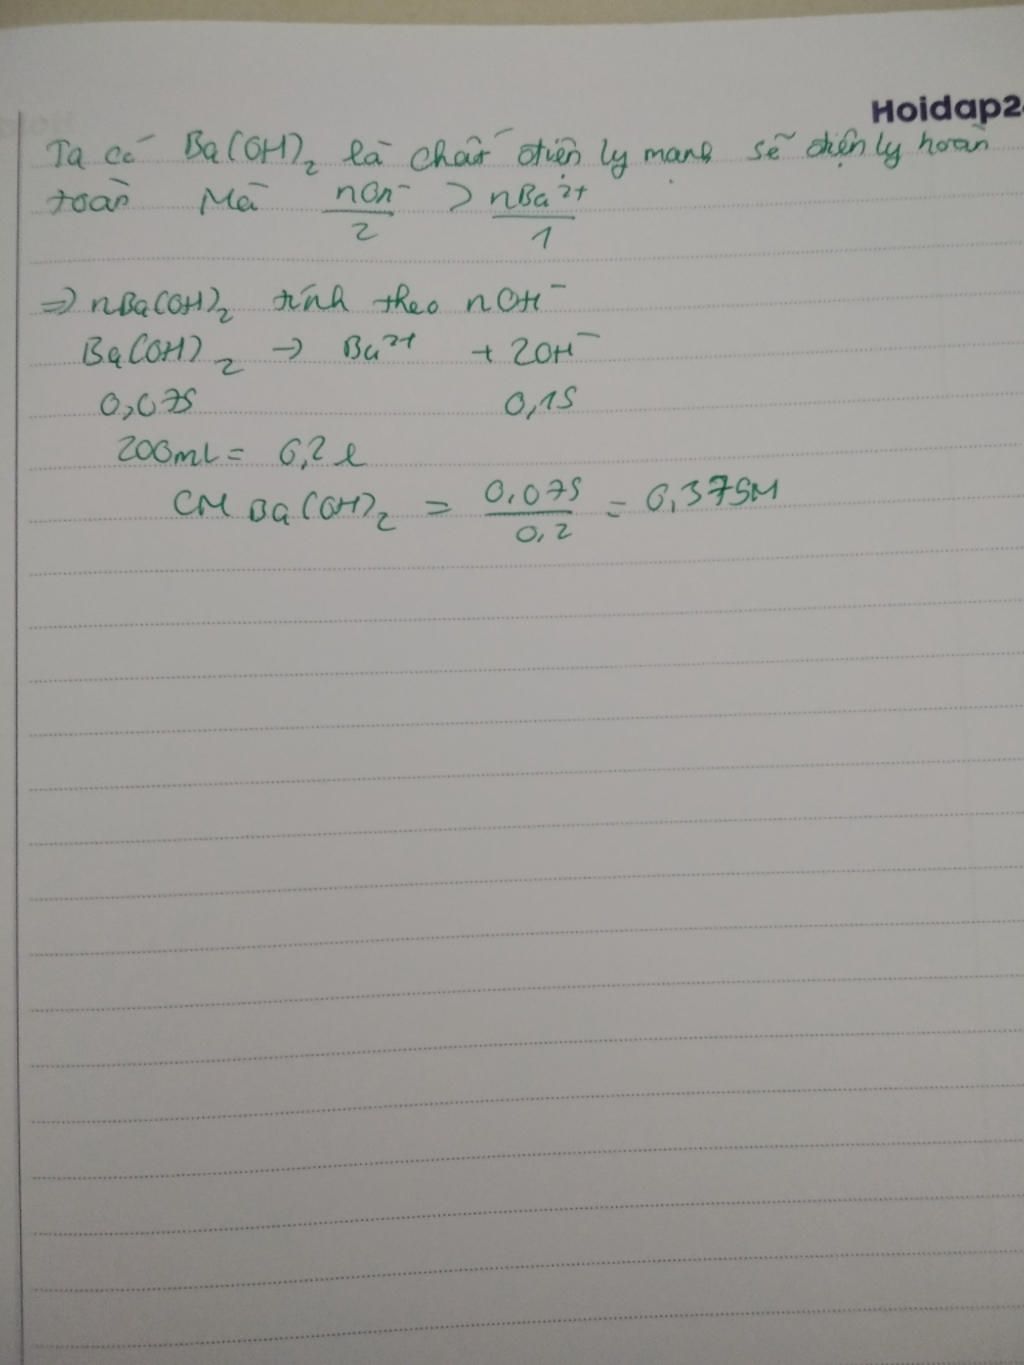 Hoidap2
Ta có Ba(OH)₂ là chất điện ly mạnh sẽ điện ly hoàn
toàn Mà nOH⁻/2 > nBa²⁺/1
=> nBa(OH)₂ tính theo nOH⁻
Ba(OH)₂ → Ba²⁺ + 2OH⁻
0,075 0,15
200ml = 0,2 l
CM Ba(OH)₂ = 0,075/0,2 = 0,375M